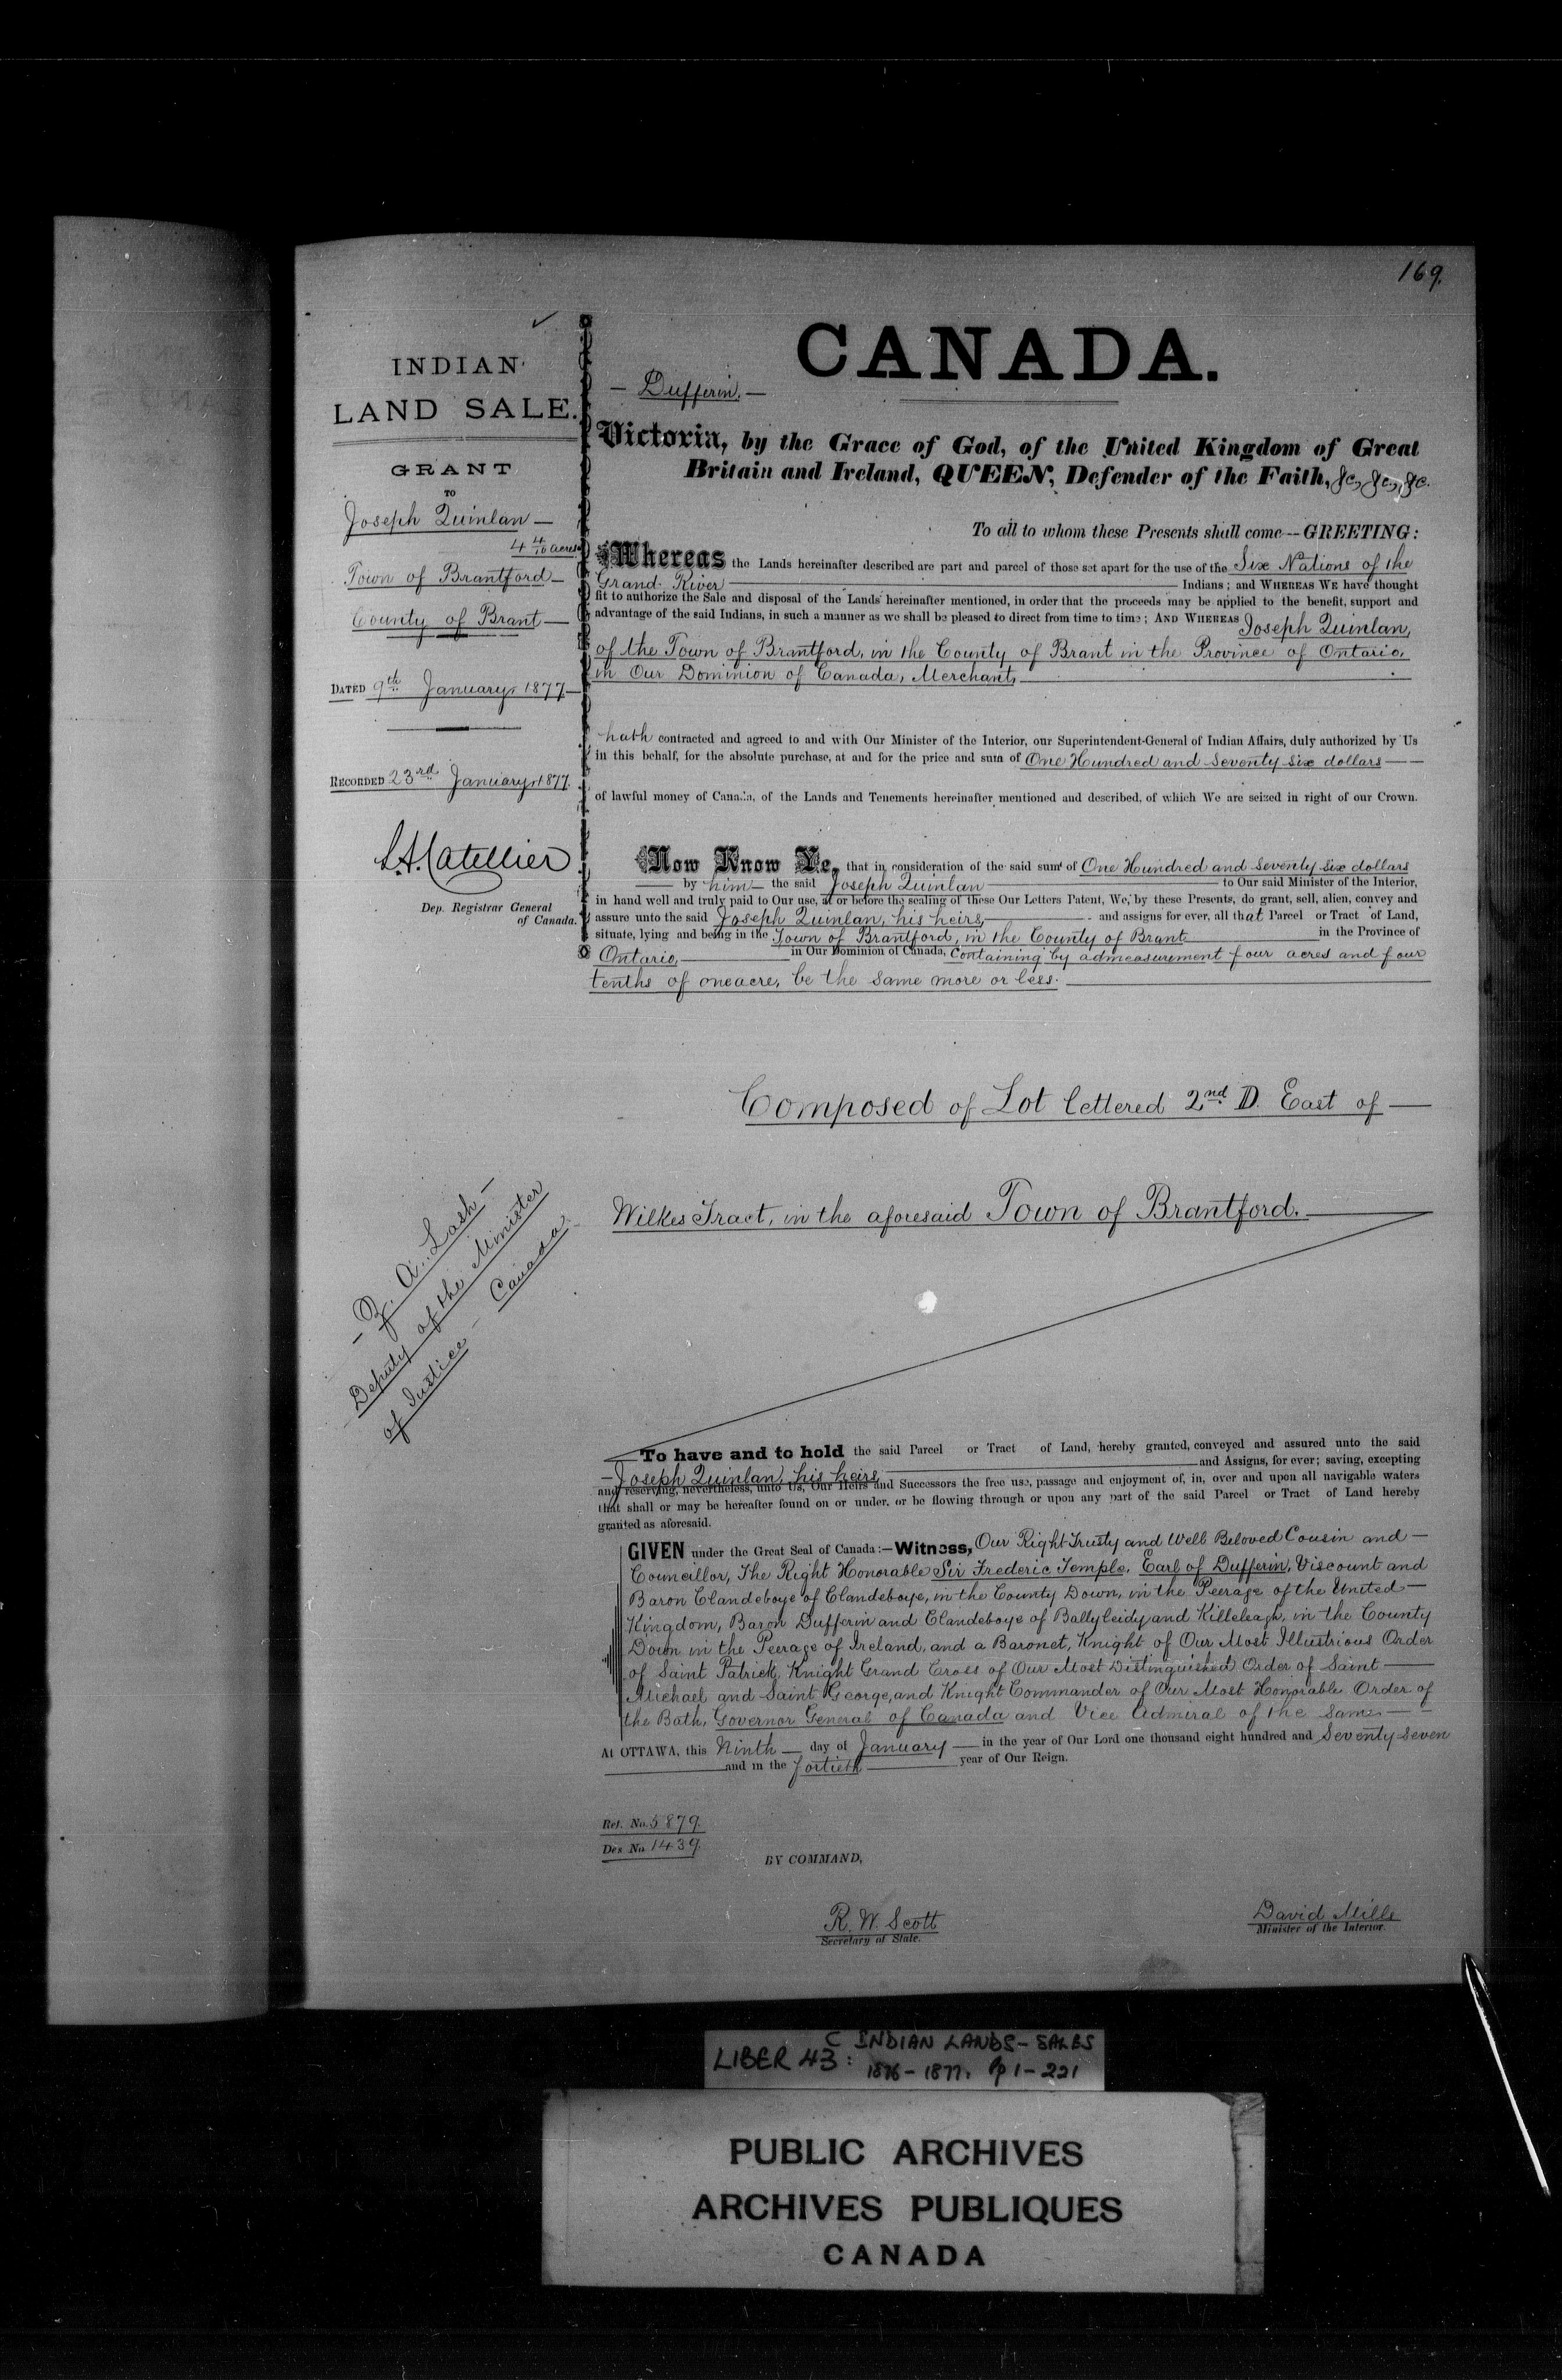 169.
INDIAN
LAND SALE.
GRANT
TO
Joseph Quinlan —
4 4/10 acres
Town of Brantford —
County of Brant —
DATED 9th January, 1877 —
RECORDED 23rd January, 1877.
L.A. Catellier
Dep. Registrar General
of Canada.
— Z. A. Lash —
Deputy of the Minister
of Justice — Canada —
CANADA.
— Dufferin. —
Victoria, by the Grace of God, of the United Kingdom of Great
Britain and Ireland, QUEEN, Defender of the Faith, &c, &c, &c.
To all to whom these Presents shall come — GREETING:
Whereas the Lands hereinafter described are part and parcel of those set apart for the use of the Six Nations of the
Grand River Indians; and WHEREAS WE have thought
fit to authorize the Sale and disposal of the Lands hereinafter mentioned, in order that the proceeds may be applied to the benefit, support and
advantage of the said Indians, in such a manner as we shall be pleased to direct from time to time; AND WHEREAS Joseph Quinlan,
of the Town of Brantford, in the County of Brant in the Province of Ontario,
in Our Dominion of Canada, Merchant,
hath contracted and agreed to and with Our Minister of the Interior, our Superintendent-General of Indian Affairs, duly authorized by Us
in this behalf, for the absolute purchase, at and for the price and sum of One Hundred and Seventy six dollars —
of lawful money of Canada, of the Lands and Tenements hereinafter mentioned and described, of which We are seized in right of our Crown.
Now Know Ye, that in consideration of the said sum of One Hundred and Seventy six dollars
by him — the said Joseph Quinlan to Our said Minister of the Interior,
in hand well and truly paid to Our use, at or before the sealing of these Our Letters Patent, We, by these Presents, do grant, sell, alien, convey and
assure unto the said Joseph Quinlan, his heirs, and assigns for ever, all that Parcel or Tract of Land,
situate, lying and being in the Town of Brantford, in the County of Brant in the Province of
Ontario, in Our Dominion of Canada, Containing by admeasurement four acres and four
tenths of one acre, be the same more or less.
Composed of Lot lettered 2nd D. East of —
Wilkes Tract, in the aforesaid Town of Brantford.
To have and to hold the said Parcel or Tract of Land, hereby granted, conveyed and assured unto the said
— Joseph Quinlan, his heirs, and Assigns, for ever; saving, excepting
and reserving, nevertheless, unto Us, Our Heirs and Successors the free use, passage and enjoyment of, in, over and upon all navigable waters
that shall or may be hereafter found on or under, or be flowing through or upon any part of the said Parcel or Tract of Land hereby
granted as aforesaid.
GIVEN under the Great Seal of Canada:— Witness, Our Right Trusty and Well Beloved Cousin and —
Councillor, The Right Honorable Sir Frederic Temple, Earl of Dufferin, Viscount and
Baron Clandeboye of Clandeboye, in the County Down, in the Peerage of the United —
Kingdom, Baron Dufferin and Clandeboye of Ballyleidy and Killeleagh, in the County
Down in the Peerage of Ireland, and a Baronet, Knight of Our Most Illustrious Order
of Saint Patrick, Knight Grand Cross of Our Most Distinguished Order of Saint —
Michael and Saint George, and Knight Commander of Our Most Honorable Order of
the Bath, Governor General of Canada and Vice Admiral of the Same —
At OTTAWA, this Ninth — day of January — in the year of Our Lord one thousand eight hundred and Seventy Seven
and in the fortieth year of Our Reign.
Ref. No. 5879.
Des. No 1439.
BY COMMAND,
R. W. Scott
Secretary of State.
David Mills
Minister of the Interior.
LIBER 43 C : INDIAN LANDS - SALES
1876 - 1877. Pp 1 - 221
PUBLIC ARCHIVES
ARCHIVES PUBLIQUES
CANADA